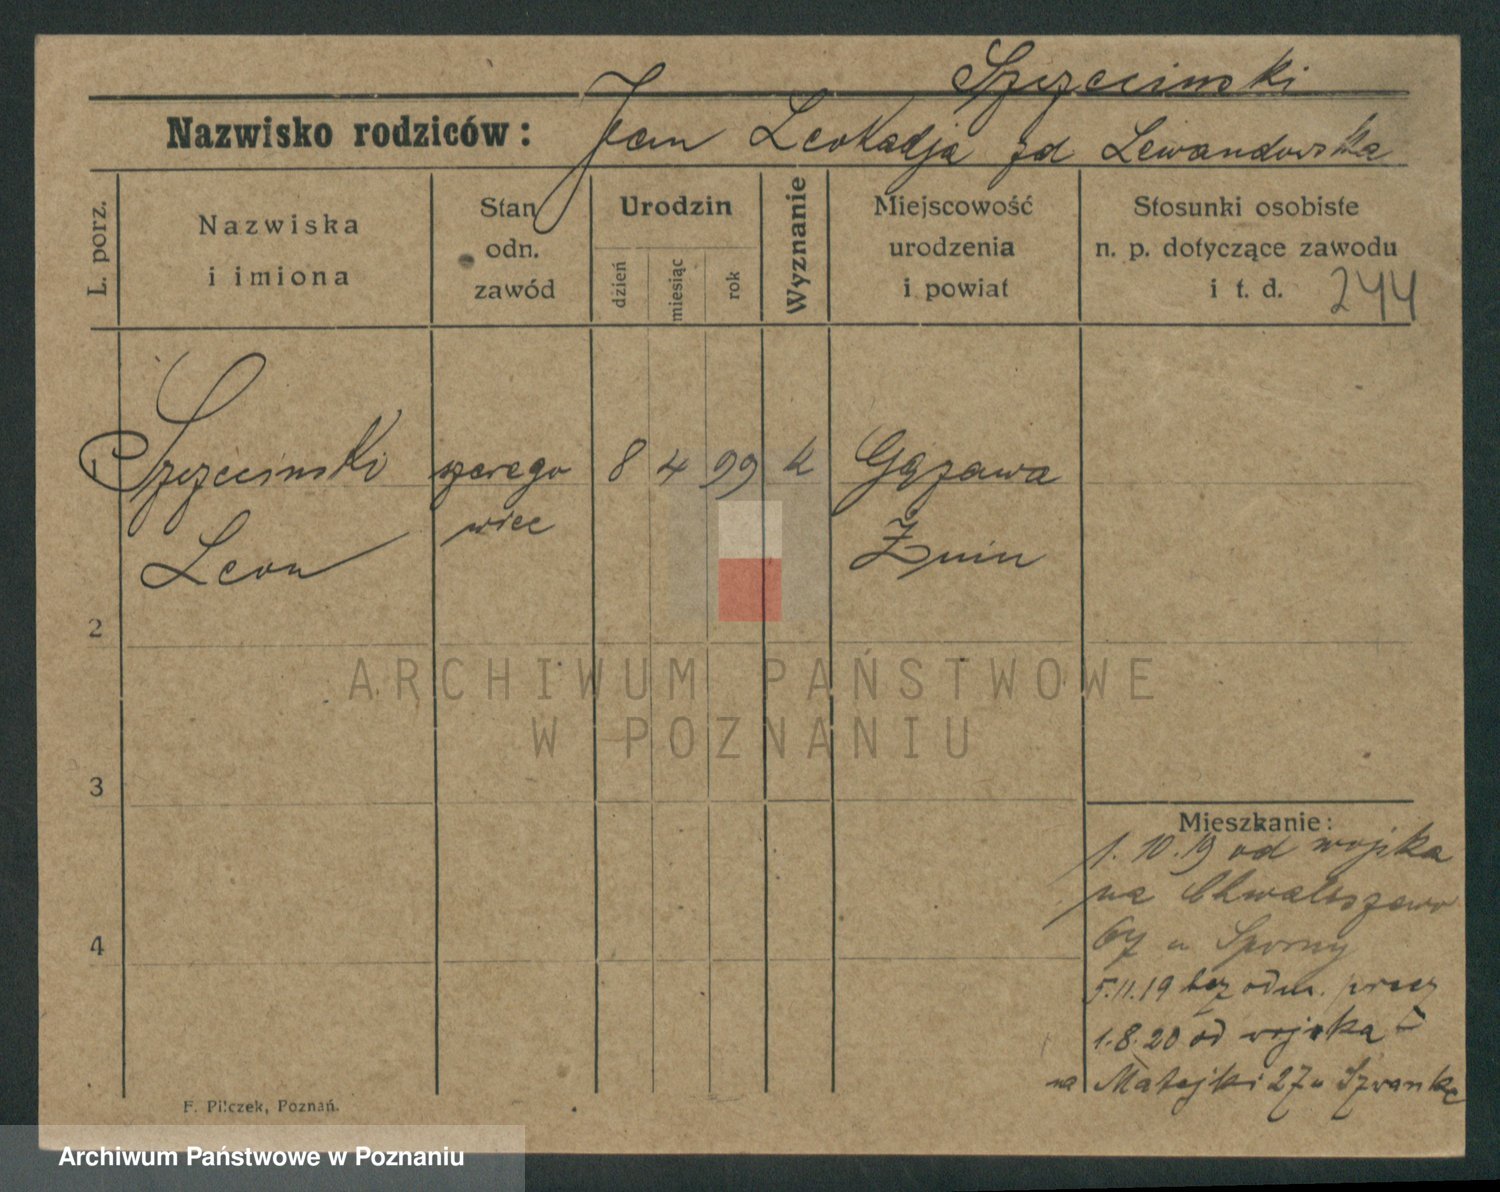 Szczecinski
Nazwisko rodziców: Jan Leokadja zd Lewandowska
L. porz.
Nazwiska
i imiona
Stan
odn.
zawód
Urodzin
dzień
miesiąc
rok
Wyznanie
Miejscowość
urodzenia
i powiat
Stosunki osobiste
n. p. dotyczące zawodu
i t. d. 244
1 Szczecinski szerego 8 4 99 k Gązawa
Leon wiec Żnin
2
3
4
Mieszkanie:
1. 10. 19 od wojska
na Chwaliszewo
67 u Sporny
5.11.19 bez odm. precz
1.8.20 od wojska
na Matejki 27 u Szwanke
F. Pilczek, Poznań.
ARCHIWUM PAŃSTWOWE
W POZNANIU
Archiwum Państwowe w Poznaniu